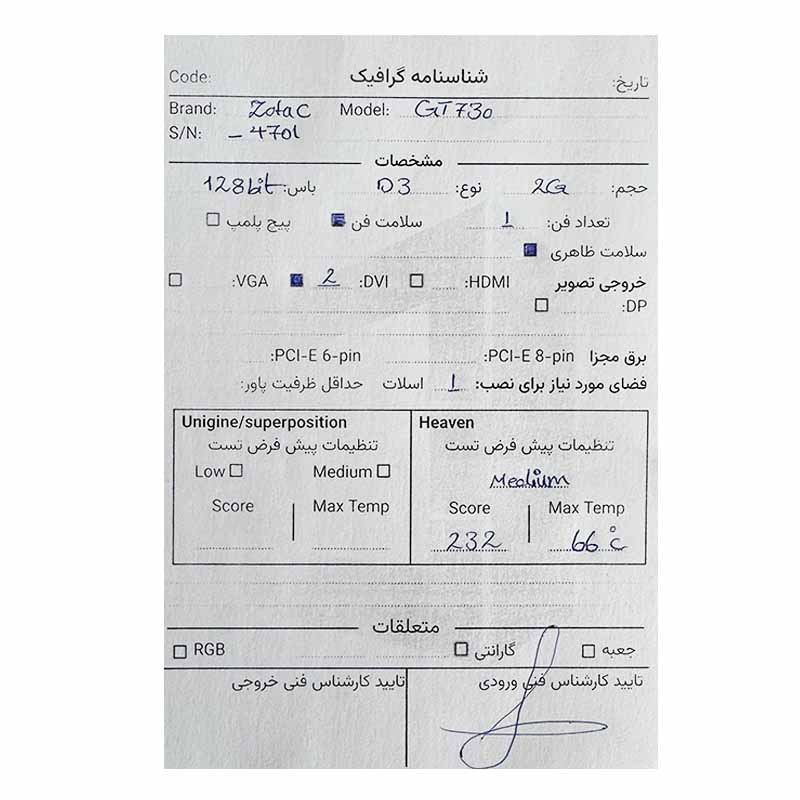 تاریخ: شناسنامه گرافیک Code:
Brand: Zotac Model: GT730
S/N: - 4701
مشخصات
حجم: 2G نوع: D3 باس: 128bit
تعداد فن: 1 سلامت فن پیچ پلمپ
سلامت ظاهری
خروجی تصویر HDMI: DVI: 2 VGA:
DP:
برق مجزا PCI-E 8-pin: PCI-E 6-pin:
فضای مورد نیاز برای نصب: 1 اسلات حداقل ظرفیت پاور:
Unigine/superposition Heaven
تنظیمات پیش فرض تست تنظیمات پیش فرض تست
Low Medium Medium
Score Max Temp Score Max Temp
232 66°c
متعلقات
جعبه گارانتی RGB
تایید کارشناس فنی ورودی تایید کارشناس فنی خروجی